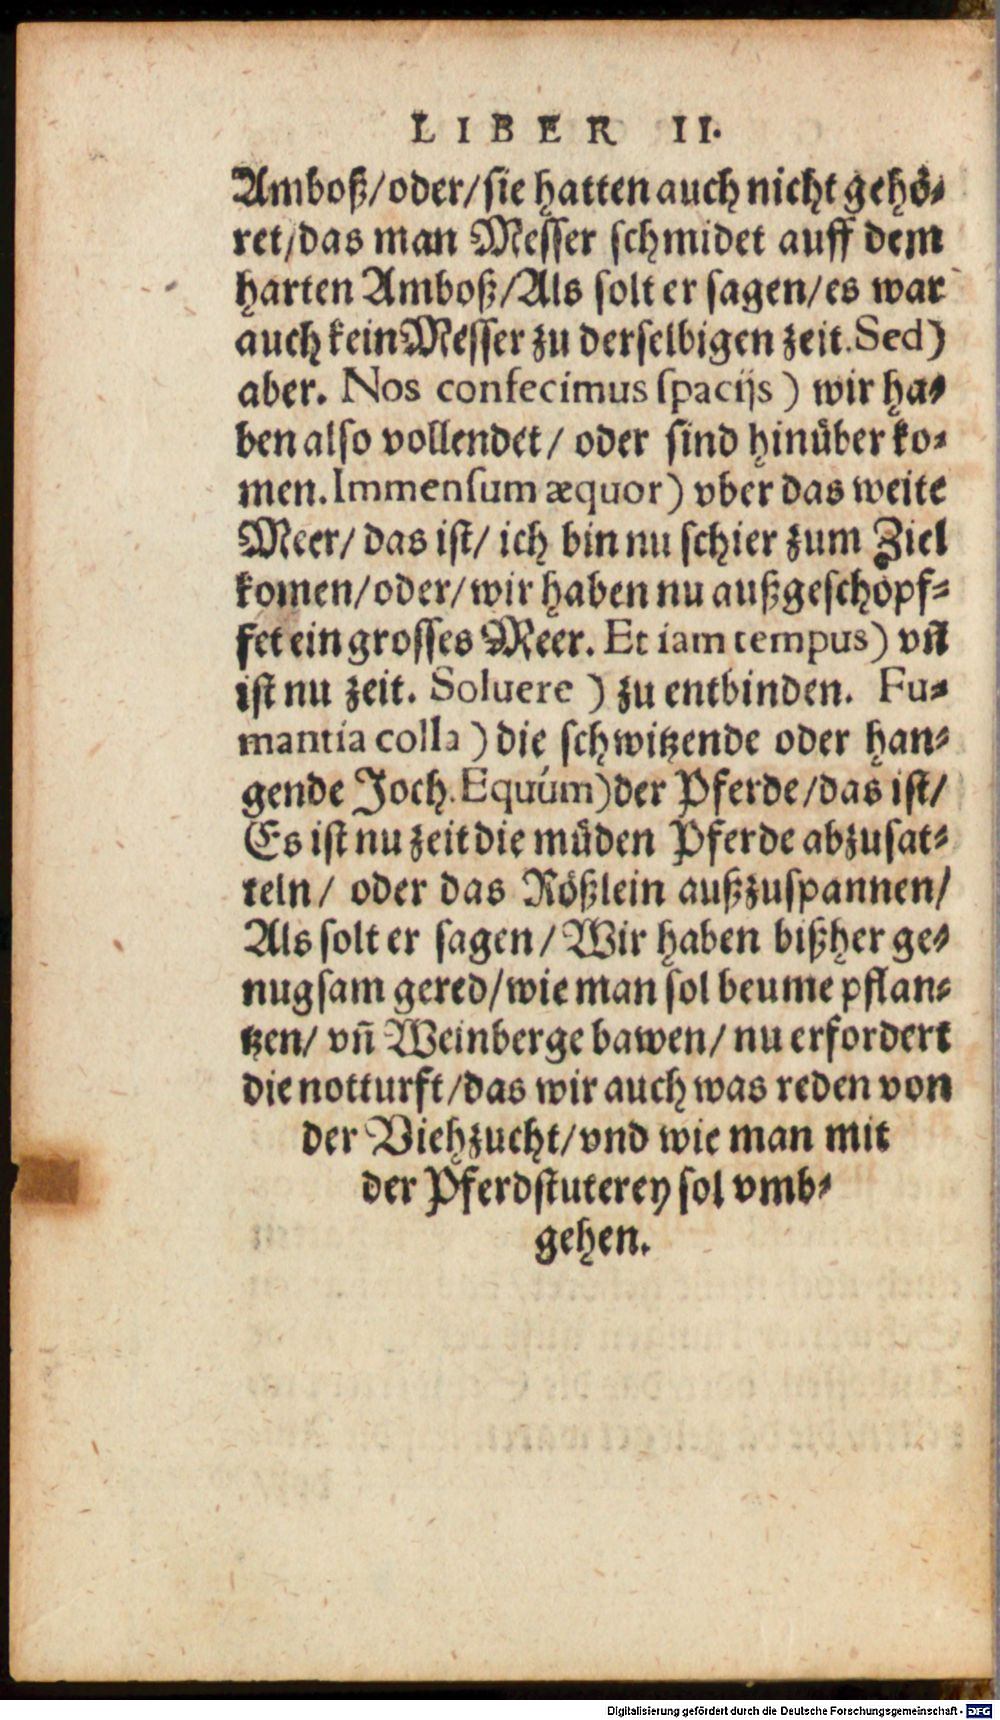 LIBER II.
Amboß/oder/sie hatten auch nicht gehö-
ret/das man Messer schmidet auff dem
harten Amboß/Als solt er sagen/es war
auch kein Messer zu derselbigen zeit. Sed)
aber. Nos confecimus spacijs) wir ha-
ben also vollendet/ oder sind hinüber ko-
men. Immensum æquor) vber das weite
Meer/ das ist/ ich bin nu schier zum Ziel
komen/oder/wir haben nu außgeschöpf-
fet ein grosses Meer. Et iam tempus) vñ
ist nu zeit. Soluere) zu entbinden. Fu-
mantia colla) die schwitzende oder han-
gende Joch. Equûm) der Pferde/das ist/
Es ist nu zeit die müden Pferde abzusat-
teln/ oder das Rößlein außzuspannen/
Als solt er sagen/ Wir haben bißher ge-
nugsam gered/wie man sol beume pflan-
tzen/ vñ Weinberge bawen/ nu erfordert
die notturft/das wir auch was reden von
der Viehzucht/vnd wie man mit
der Pferdstuterey sol vmb-
gehen.
Digitalisierung gefördert durch die Deutsche Forschungsgemeinschaft - DFG